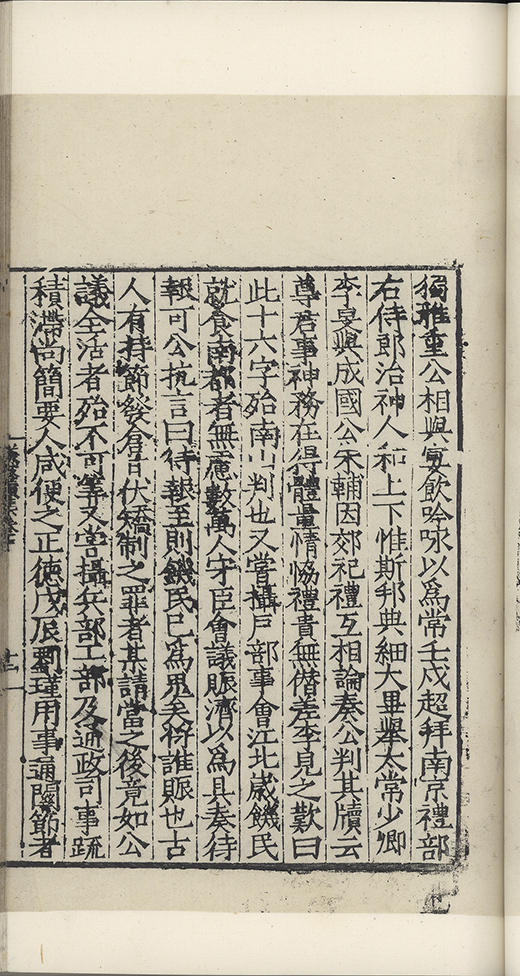 獨雅重公相與宴飲吟咏以爲常壬戌超拜南京禮部
右侍郎治神人和上下惟斯邦典細大畢舉太常少卿
李旻與成國公朱輔因郊祀禮互相論奏公判其牘云
尊君事神務在得體量情恊禮貴無僣差李見之歎曰
此十六字殆南山判也又嘗攝戶部事會江北歲饑民
就食南都者無慮數萬人守臣會議賑濟以爲具奏待
報可公抗言曰待報至則饑民已爲鬼矣將誰賑也古
人有持節發倉言伏矯制之罪者某請當之後竟如公
議全活者殆不可筭又嘗攝兵部工部及通政司事疏
積滯尚簡要人咸便之正德戊辰劉瑾用事通關節者